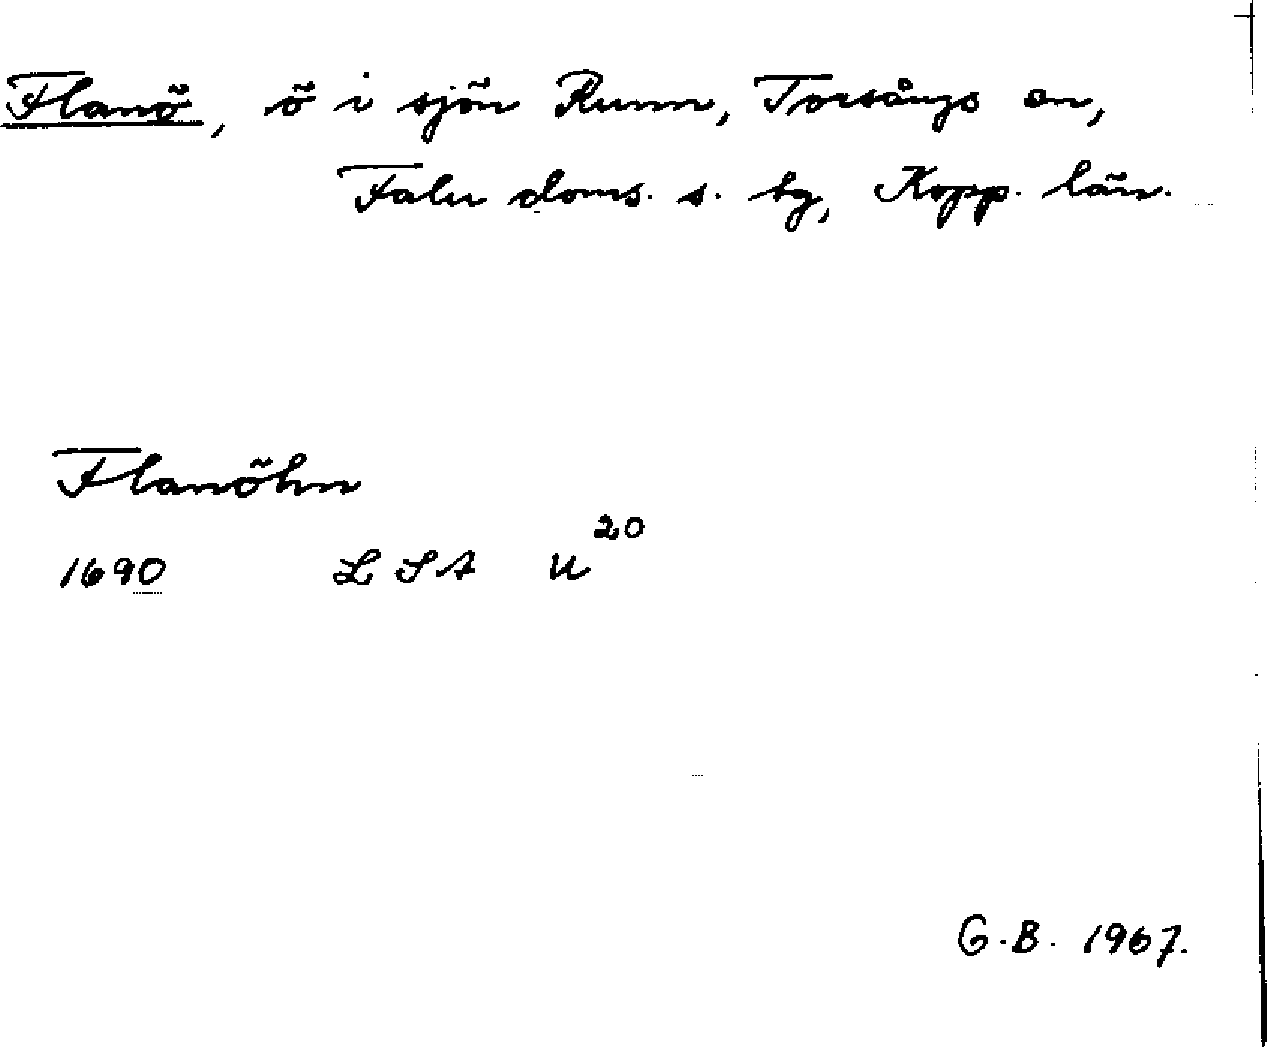 Flanö, ö i sjön Runn, Torsångs sn,
Falu doms. s. tg, Kopp. län.
Flanöhn
1690 LSA U²⁰
G.B. 1967.